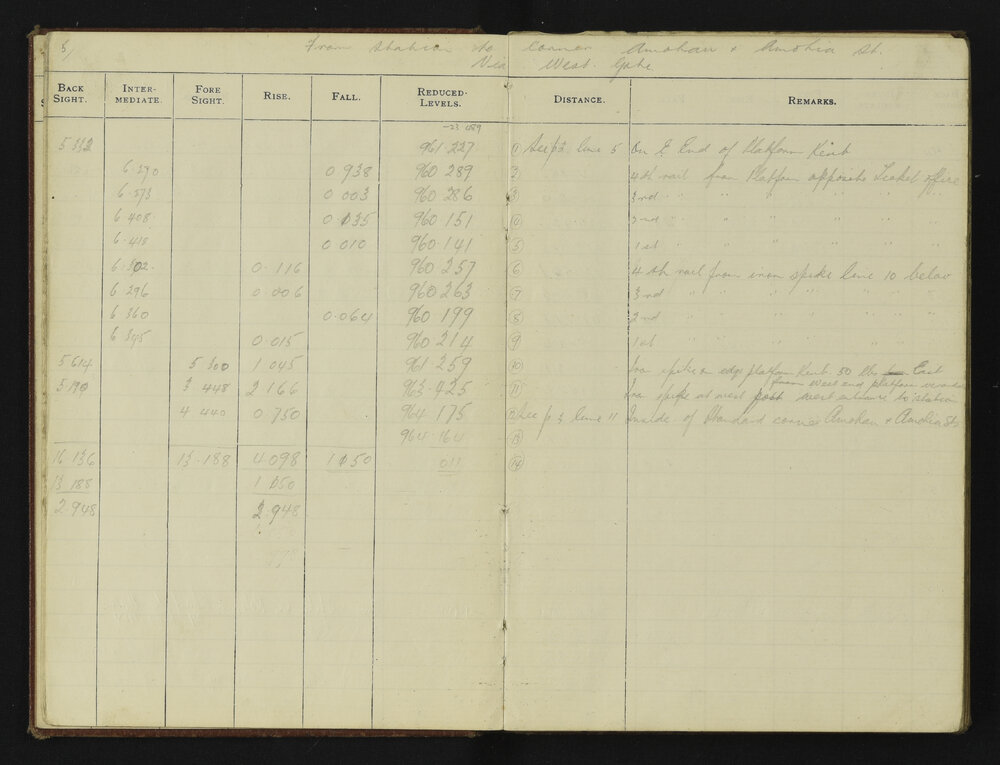 5/ From Station to corner Amohau & Amohia St.
Via West Gate
BACK SIGHT. INTER-MEDIATE. FORE SIGHT. RISE. FALL. REDUCED-LEVELS. DISTANCE. REMARKS.
5 332 961 227 ① See p 3 line 5 On E End of Platform Kerb
6 270 0 938 960 289 ② 4th rail from Platform opposite Ticket office
6 273 0 003 960 286 ③ 3rd " " " " " "
6 408 0 135 960 151 ④ 2nd " " " " " "
6 418 0 010 960 141 ⑤ 1st " " " " " "
6 302 0.116 960 257 ⑥ 4th rail from iron spike line 10 below
6 296 0.006 960 263 ⑦ 3rd " " " " " "
6 360 0.064 960 199 ⑧ 2nd " " " " " "
6 345 0.015 960 214 ⑨ 1st " " " " " "
5 614 5 300 1 045 961 259 ⑩ Iron spike on edge platform Kerb. 50 lks East
from West end platform
5 190 3 448 2 166 963 425 ⑪ Iron spike at west post west entrance to station
4 440 0.750 964 175 ⑫ See p 3 line 11 Inside of Standard corner Amohau & Amohia St
964 164 ⑬
16 136 13.188 4.098 1 150 011 ⑭
13 188 1 150
2.948 2.948